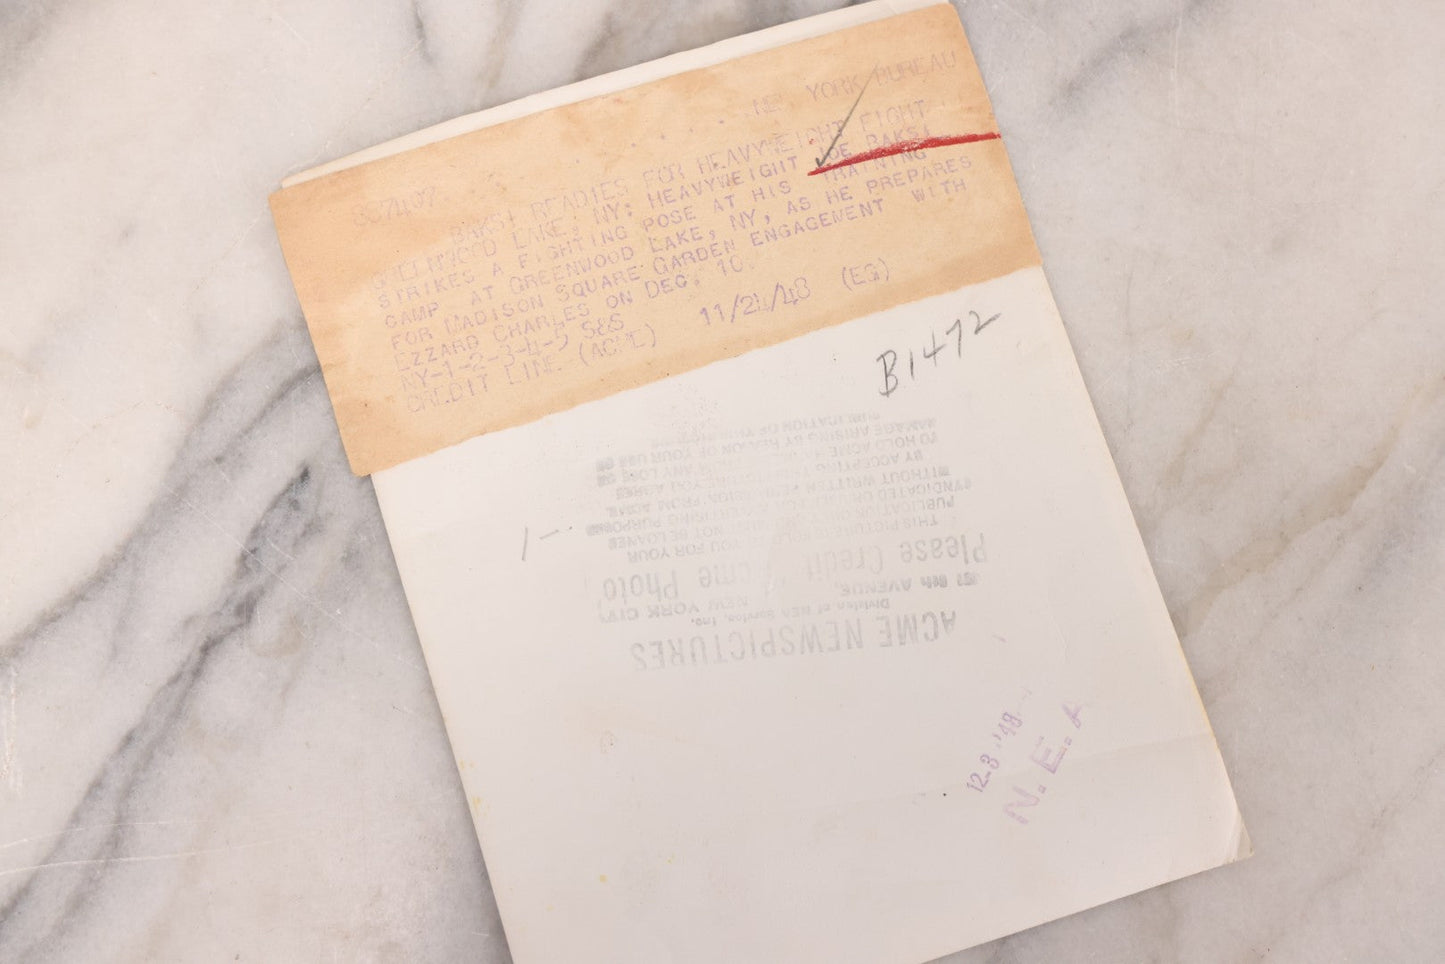 NEW YORK BUREAU
BAKSI READIES FOR HEAVYWEIGHT FIGHT
GREENWOOD LAKE, NY: HEAVYWEIGHT JOE BAKSI
STRIKES A FIGHTING POSE AT HIS TRAINING
CAMP AT GREENWOOD LAKE, NY, AS HE PREPARES
FOR MADISON SQUARE GARDEN ENGAGEMENT WITH
EZZARD CHARLES ON DEC. 10.
NY-1-2-3-4-5 S&S
CREDIT LINE (ACME) 11/24/48 (EG)
B1472
1-
ACME NEWSPICTURES
Division of NEA Service, Inc.
8th AVENUE, NEW YORK CITY
Please Credit "Acme Photo
THIS PICTURE IS SOLD TO YOU FOR YOUR
PUBLICATION ONLY AND MUST NOT BE LOANED
SYNDICATED OR USED FOR ADVERTISING PURPOSES
WITHOUT WRITTEN PERMISSION FROM ACME
BY ACCEPTING THIS PICTURE YOU AGREE
TO HOLD ACME FROM ANY LOSS OR
DAMAGE ARISING BY REASON OF YOUR USE OR
PUBLICATION OF THIS
12-3-'48
N.E.A